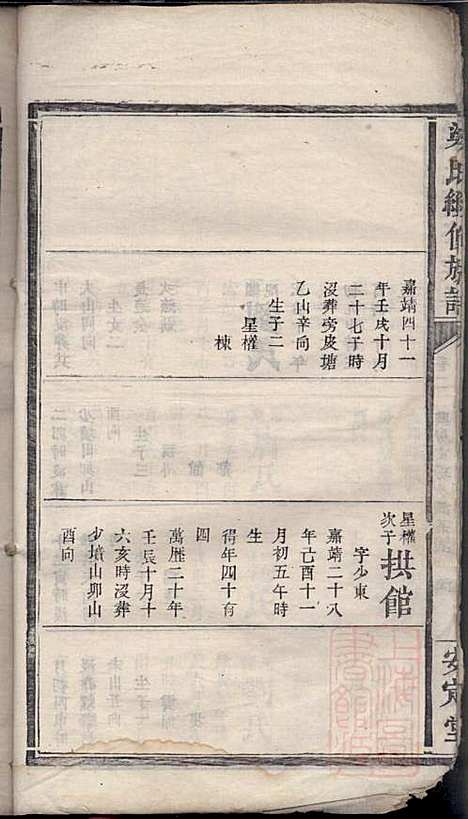 氏繼修族譜
嘉靖四十一
年壬戌十月
二十七子時
沒葬旁皮塘
乙山辛向
生子二
星權
棟
星權
次子
拱館
字少東
嘉靖二十八
年己酉十一
月初五午時
生
得年四十有
四
萬歷二十年
壬辰十月十
六亥時沒葬
少墳山卯山
酉向
安定堂